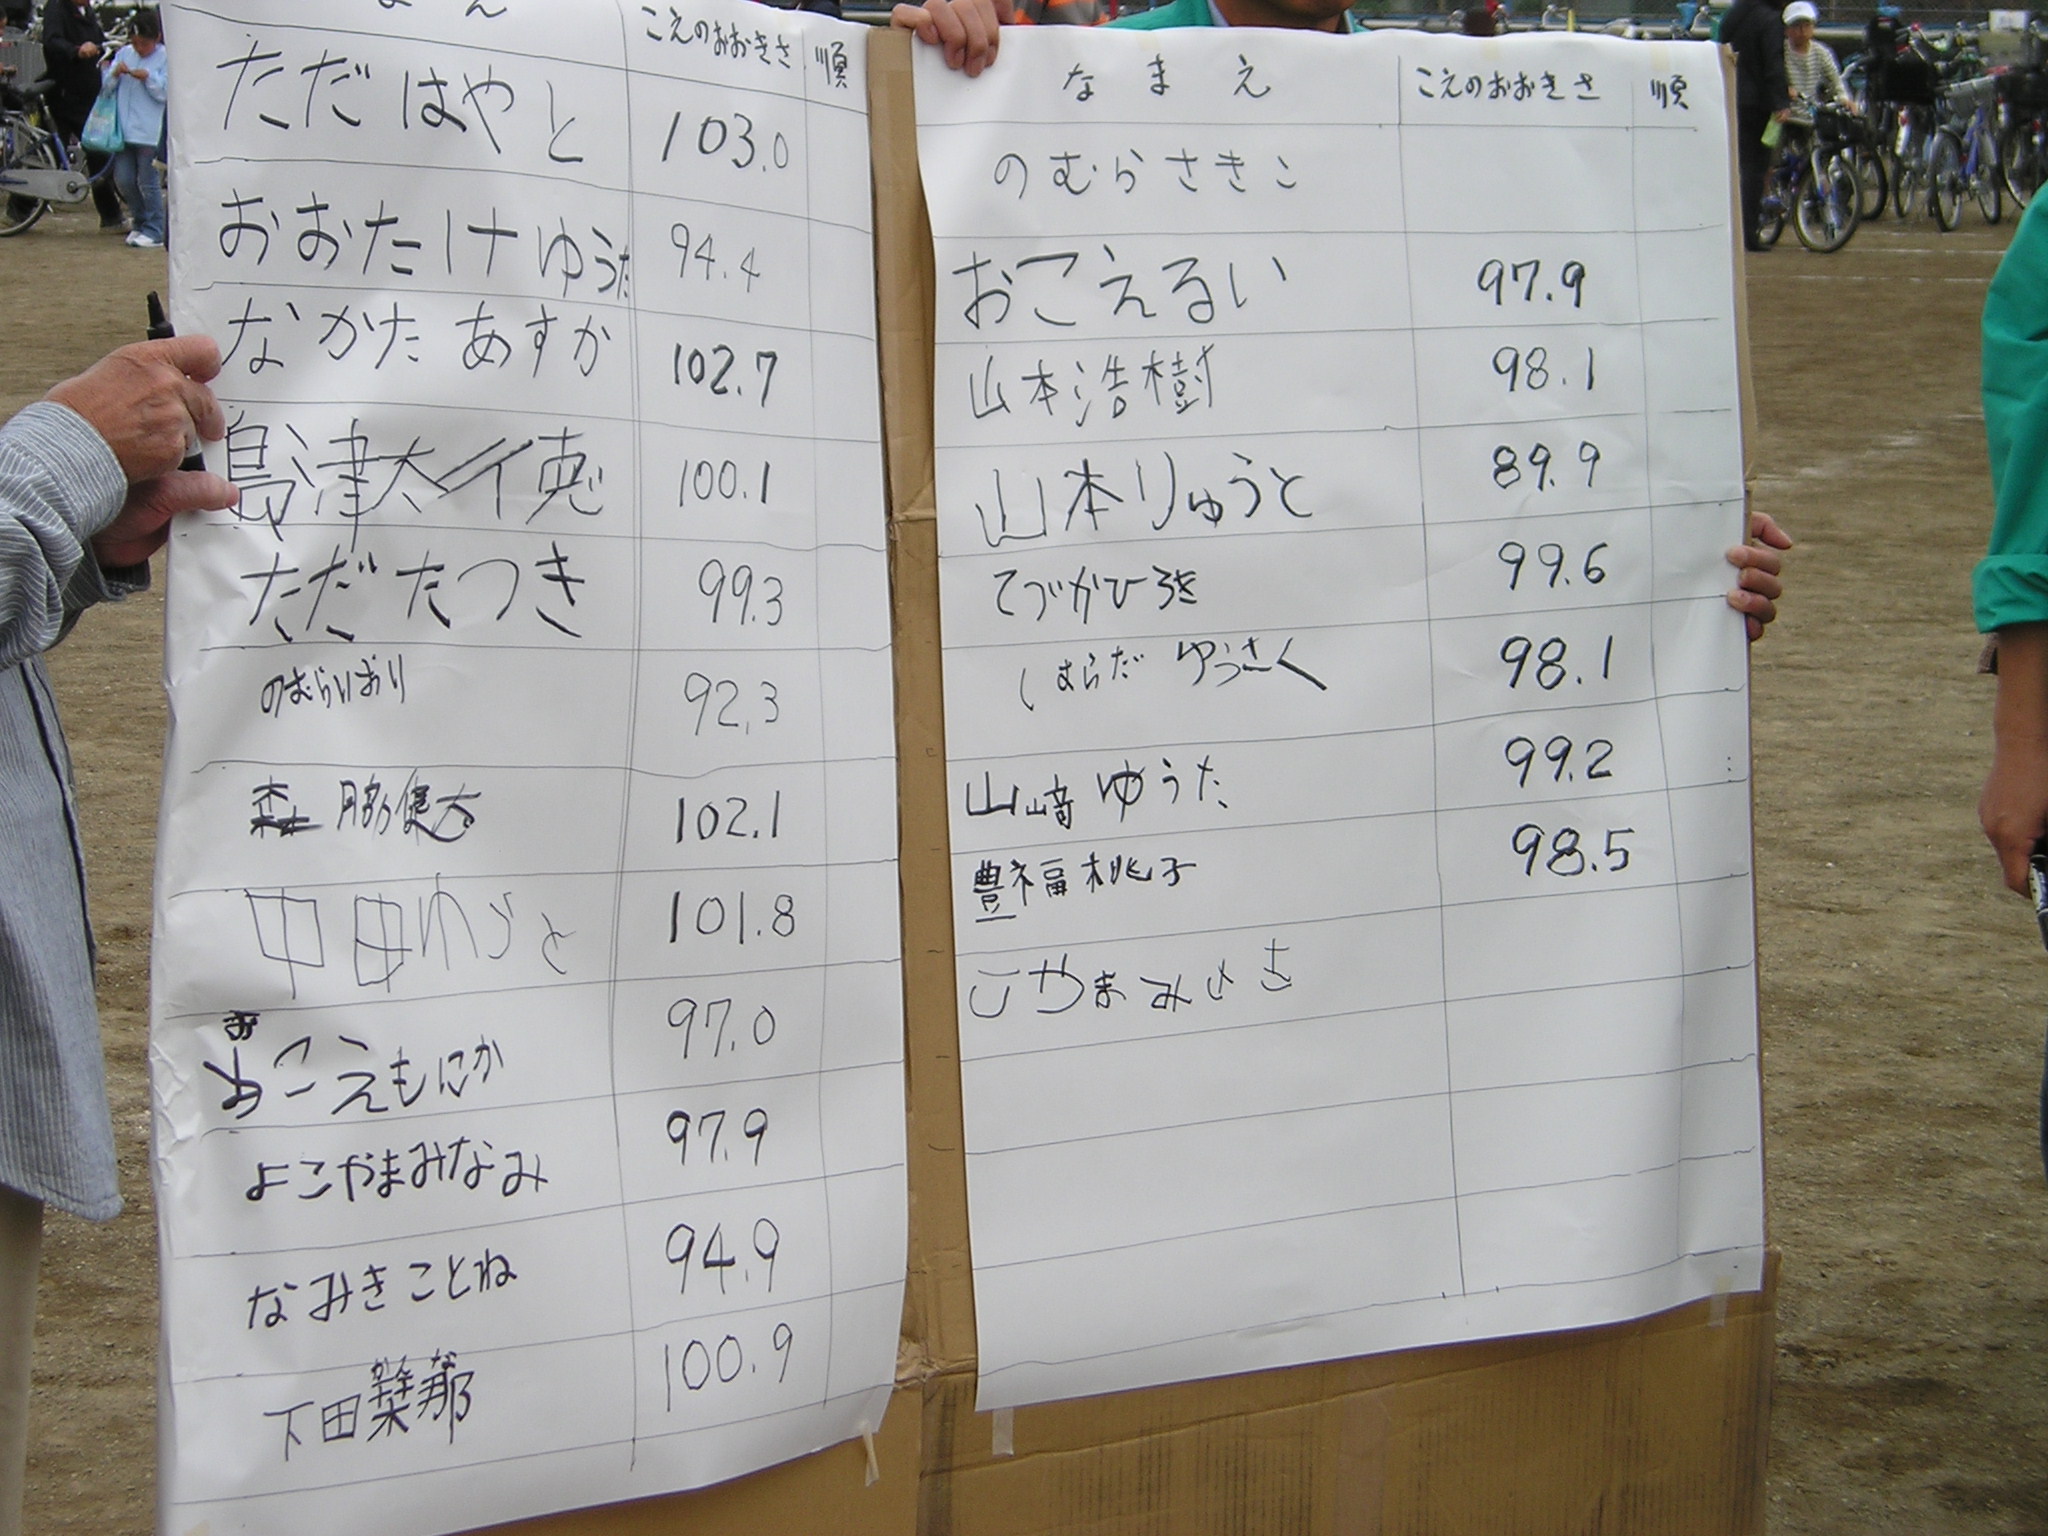 こえのおおきさ 順
ただ はやと 103.0
おおたけ ゆうた 94.4
なかた あすか 102.7
島津太 100.1
ただ たつき 99.3
のむらいおり 92.3
森脇健太 102.1
中田ゆうと 101.8
お
おこえもにか 97.0
よこやまみなみ 97.9
なみきことね 94.9
かんな
下田栞那 100.9
なまえ こえのおおきさ 順
のむらさきこ
おこえるい 97.9
山本浩樹 98.1
山本りゅうと 89.9
てづかひろき 99.6
しむらだ ゆうさく 98.1
山﨑ゆうた 99.2
豊福桃子 98.5
こやまみさき